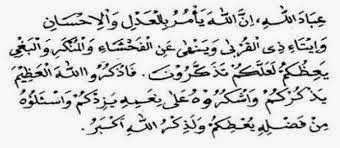 عِبَادَ اللهِ، اِنَّ اللهَ يَأْمُرُ بِالْعَدْلِ وَاْلاِحْسَانِ
وَاِيْتَاءِ ذِى الْقُرْبَى وَيَنْهَى عَنِ الْفَحْشَاءِ وَالْمُنْكَرِ وَالْبَغْيِ
يَعِظُكُمْ لَعَلَّكُمْ تَذَكَّرُوْنَ. فَاذْكُرُوا اللهَ الْعَظِيْمَ
يَذْكُرْكُمْ وَاشْكُرُوْهُ عَلَى نِعَمِهِ يَزِدْكُمْ وَاسْئَلُوْهُ
مِنْ فَضْلِهِ يُعْطِكُمْ وَلَذِكْرُ اللهِ اَكْبَرُ.